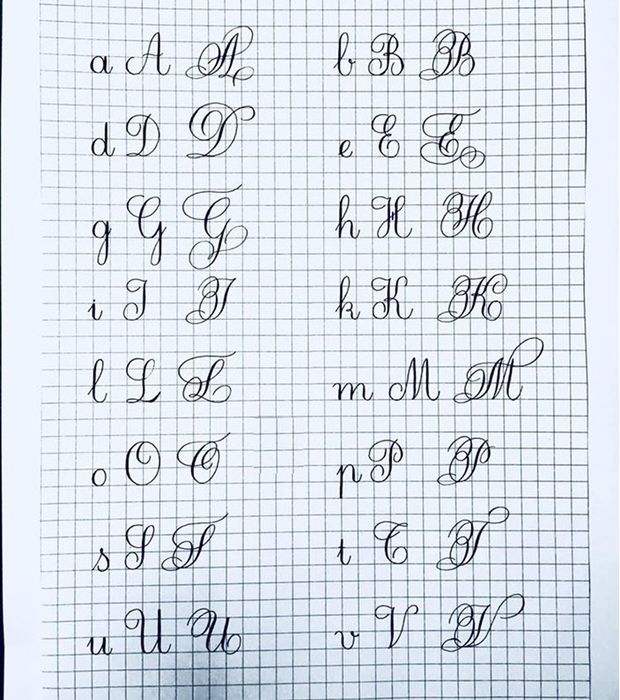 a A A b B B
d D D e E E
g G G h H H
i I I k K K
l L L m M M
o O O p P P
s S S t T T
u U U v V V